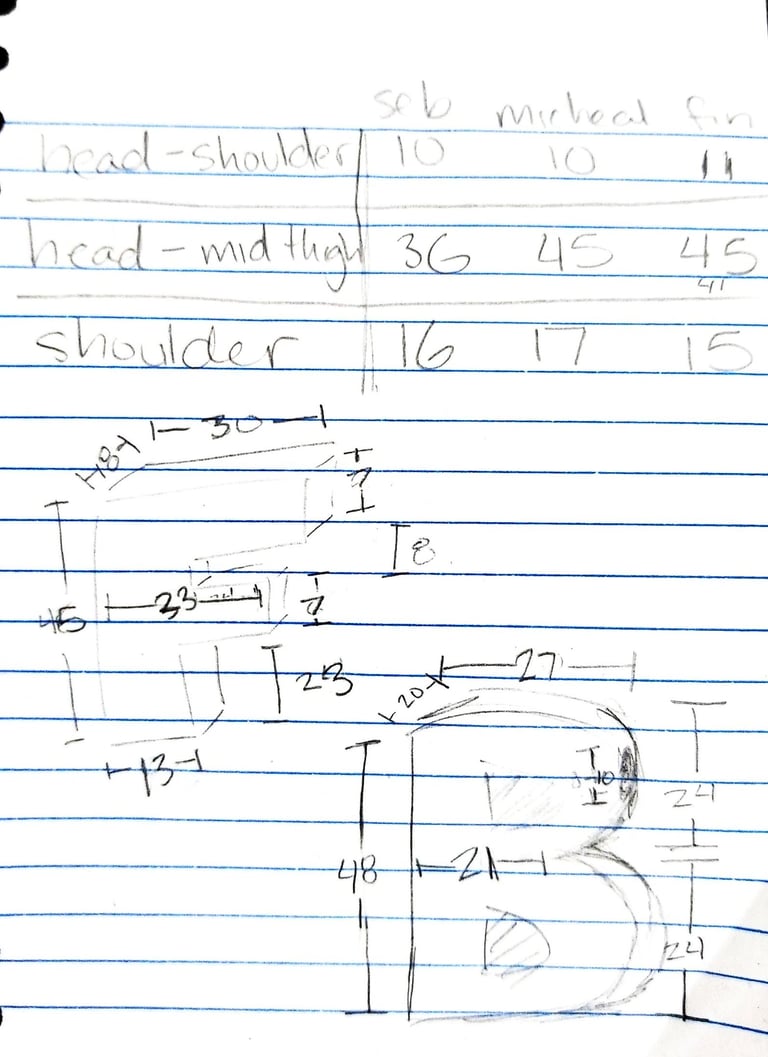 seb micheal fin
head-shoulder 10 10 11
head-mid thigh 36 45 45
41
shoulder 16 17 15
30
8
7
8
33
7
45
23
13
27
20
10
24
21
48
24